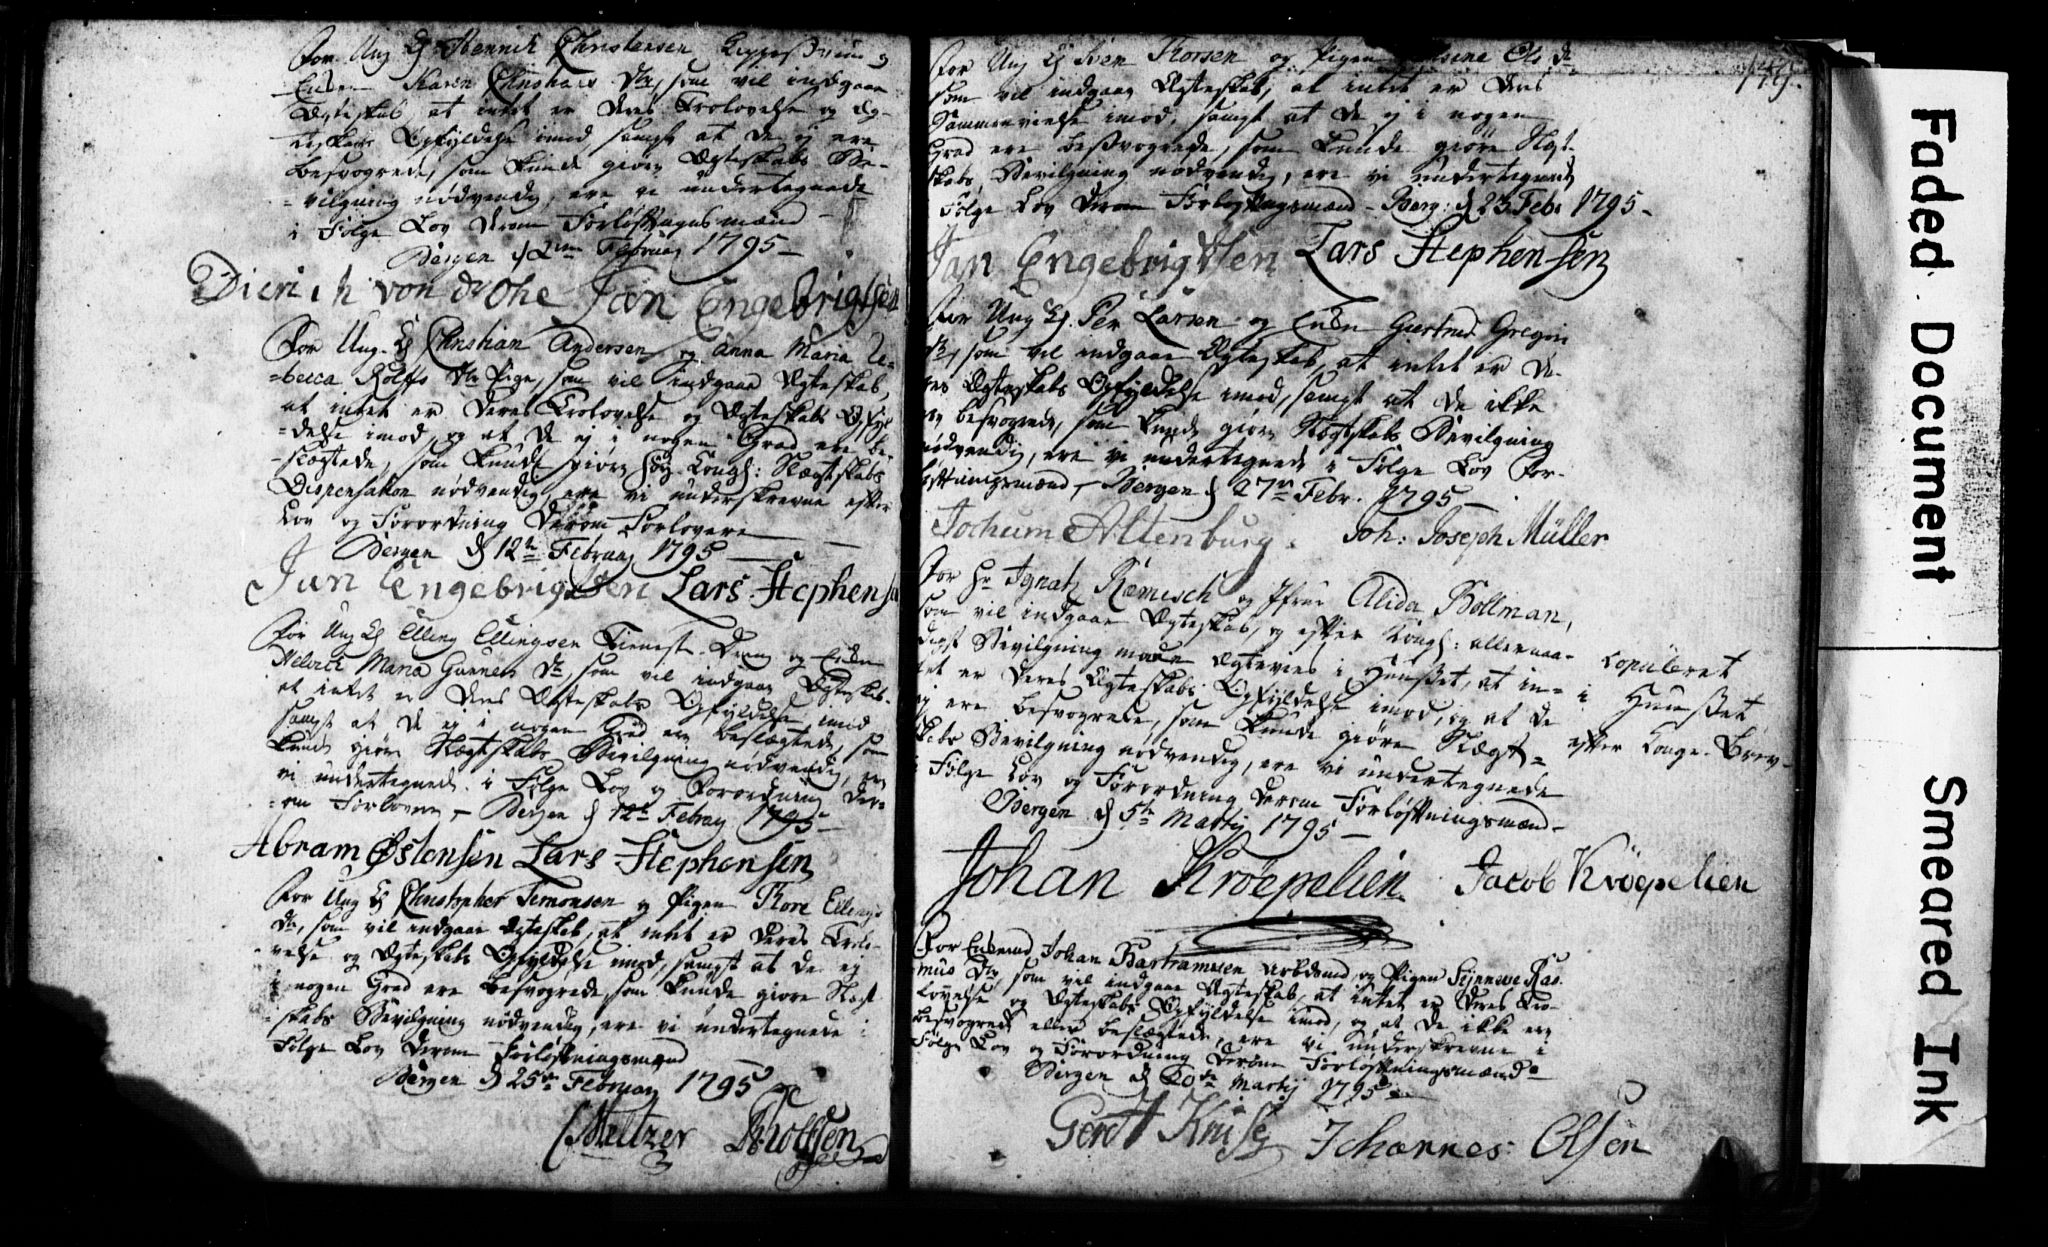 For Ung K Hennich Christensen
Enken Karen Christians Dtr, som vil indgaae
Ægteskab, at intet er Deres Trolovelse og Æg-
teskabs Opfyldelse imod samt at de ej ere
besvogrede, som kunde giøre Ægteskabs Be-
=vilgning nødvendig, ere vi undertegnede
i Følge Lov derom Forløftningsmænd
Bergen d Februarj 1795
Dierich von Jan Engebrigtsen
For Ung K Christian Andersen og Anna Maria Re-
=becca Rolffs Dtr Pige, som vil indgaae Ægteskab,
at intet er Deres Trolovelse og Ægteskabs Opfyl
=delse imod, og at de ej i nogen Grad ere be-
-slægtede, som kunde giøre Kongl: Slægtskabs
Dispensation nødvendig, ere vi underskrevne efter
Lov og Forordning derom Forlovere
Bergen d 12te Februarj 1795
Jan Engebrigtsen Lars Stephensen
For Ung K Elling Ellingsen Tieneste Dreng og Enken
Maria Gunners Dtr, som vil indgaae Ægteskab,
at intet er Deres Ægteskabs Opfyldelse imod
samt at de ej i nogen Grad ere beslægtede, som
kunde giøre Slægtskabs Bevilgning nødvendig, ere
vi undertegnede i Følge Lov og Forordning der-
=om Forlovere, Bergen d 12te Februarj 1795
Abram Østensen Lars Stephensen
For Ung K Christopher Simonsen og Pigen Kore Ellings
Dtr, som vil indgaae Ægteskab, at intet er Deres Trolo-
=velse og Ægteskabs Opfyldelse imod, samt at de ej
i nogen Grad ere besvogrede, som kunde giøre Slægt
=skabs Bevilgning nødvendig, ere vi undertegnede i
Følge Lov derom Forløftningsmænd
Bergen d 25de Februarj 1795
CMeltzer
For Ung K Iver Thorsen og Pigen Ols Dtr
som vil indgaae Ægteskab, at intet er Deres
Sammenvielse imod, samt at de ej i nogen
Grad ere besvogrede, som kunde giøre Slægt-
skabs Bevilgning nødvendig, ere vi undertegnede
Følge Lov derom Forløftningsmænd - Berg: d 23 Febr 1795
Jan Engebrigtsen Lars Stephensen
For Ung K. Per Larsen og Enken Giertrud Gregori
Dtr, som vil indgaae Ægteskab, at intet er De-
res Ægteskabs Opfyldelse imod, samt at de ikke
ere besvogrede, som kunde giøre Slægtskabs Bevilgning
nødvendig, ere vi undertegnede i Følge Lov For-
løftningsmænd, Bergen d 27de Febr. 1795
Jochum Altenburg. Joh: Joseph Müller
For Hr Ignatz Römisch og Jfrue Alida Bollman,
som vil indgaae Ægteskab, og efter Kongl: allernaa-
digst Bevilgning maae Ægtevies i Huuset, at in-
tet er Deres Ægteskabs Opfyldelse imod, og at de
ej ere besvogrede, som kunde giøre Slægt=
skabs Bevilgning nødvendig, ere vi undertegnede
i Følge Lov og Forordning derom Forløftningsmænd
Bergen d 5te Martij 1795
Copuleret
i Huuset
efter Konge-Brev
Johan Krøepelien Jacob Krøepelien
For Enkemd Johan Bastramsen Arbdsmd og Pigen Synneve Ras-
mus Dtr som vil indgaae Ægteskab, at intet er Deres Tro-
lovelse og Ægteskabs Opfyldelse imod, og at de ikke ere
besvogrede eller beslægtede, ere vi underskrevne i
Følge Lov og Forordning derom Forløftningsmænd
Bergen d 20de Martij 1795
Gerdt Kruse Johannes Olsen
Faded Document
Smeared Ink